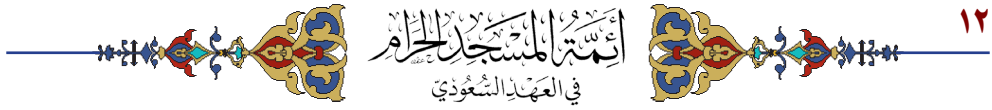 ١٢
أَئِمَّةُ المَسْجِدِ الحَرَامِ
فِي العَهْدِ السُّعُودِيّ